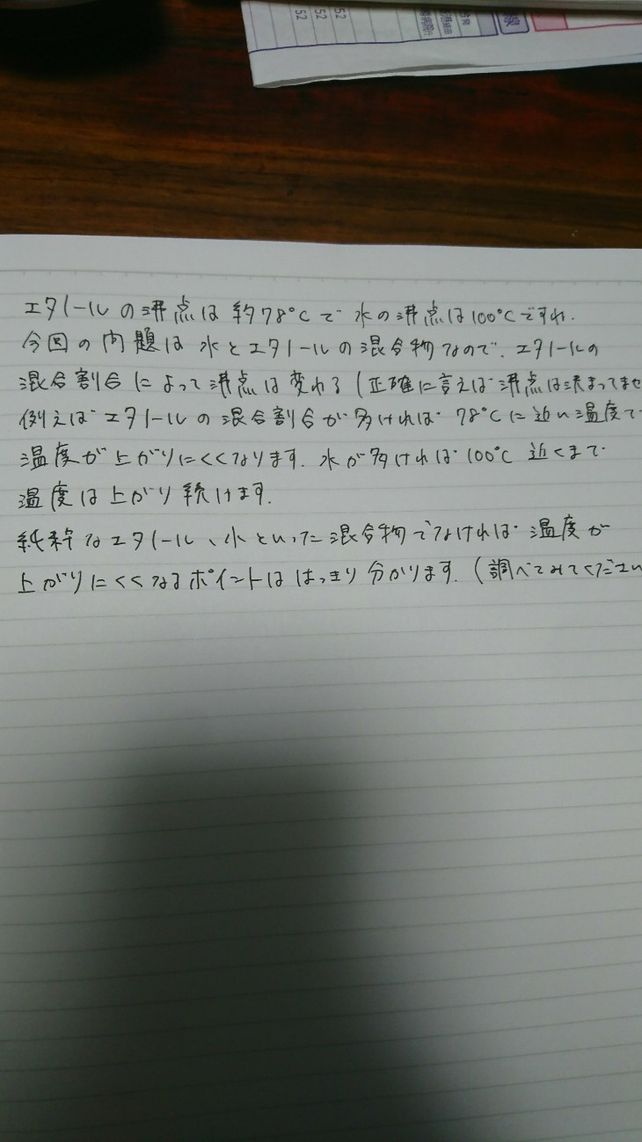 52
52
52
エタノールの沸点は約78℃で水の沸点は100℃ですね.
今回の問題は水とエタノールの混合物なので、エタノールの
混合割合によって沸点は変わる(正確に言えば沸点は決まってませ
例えばエタノールの混合割合が多ければ78℃に近い温度で
温度が上がりにくくなります. 水が多ければ100℃近くまで
温度は上がり続けます.
純粋なエタノール、水といった混合物でなければ温度が
上がりにくくなるポイントははっきり分かります.(調べてみてください